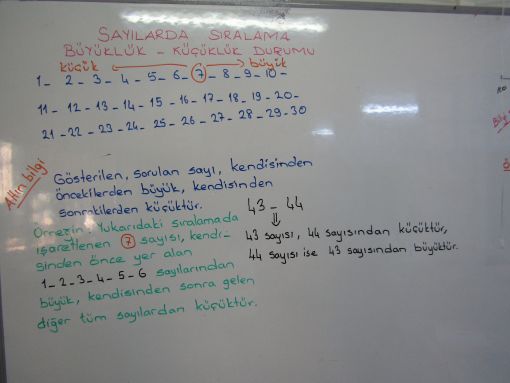 SAYILARDA SIRALAMA
BÜYÜKLÜK - KÜÇÜKLÜK DURUMU
küçük büyük
1 - 2 - 3 - 4 - 5 - 6 - 7 - 8 - 9 - 10 -
11 - 12 - 13 - 14 - 15 - 16 - 17 - 18 - 19 - 20 -
21 - 22 - 23 - 24 - 25 - 26 - 27 - 28 - 29 - 30
Altın bilgi
Gösterilen, sorulan sayı, kendisinden
öncekilerden büyük, kendisinden
sonrakilerden küçüktür.
Örneğin: Yukarıdaki sıralamada
işaretlenen 7 sayısı, kendi-
sinden önce yer alan
1 - 2 - 3 - 4 - 5 - 6 sayılarından
büyük, kendisinden sonra gelen
diğer tüm sayılardan küçüktür.
43 - 44
43 sayısı, 44 sayısından küçüktür,
44 sayısı ise 43 sayısından büyüktür.